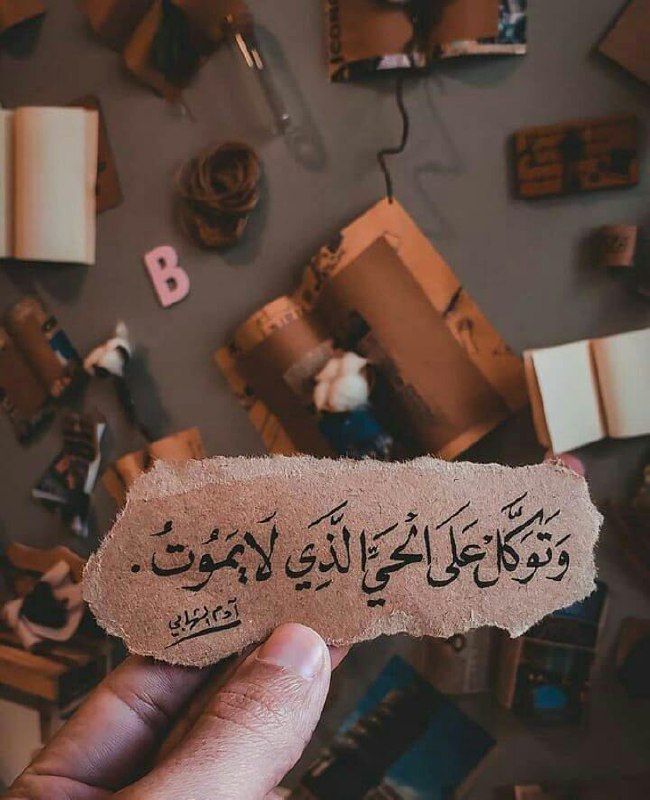 B
وَتَوَكَّلْ عَلَى الْحَيِّ الَّذِي لَا يَمُوتُ .